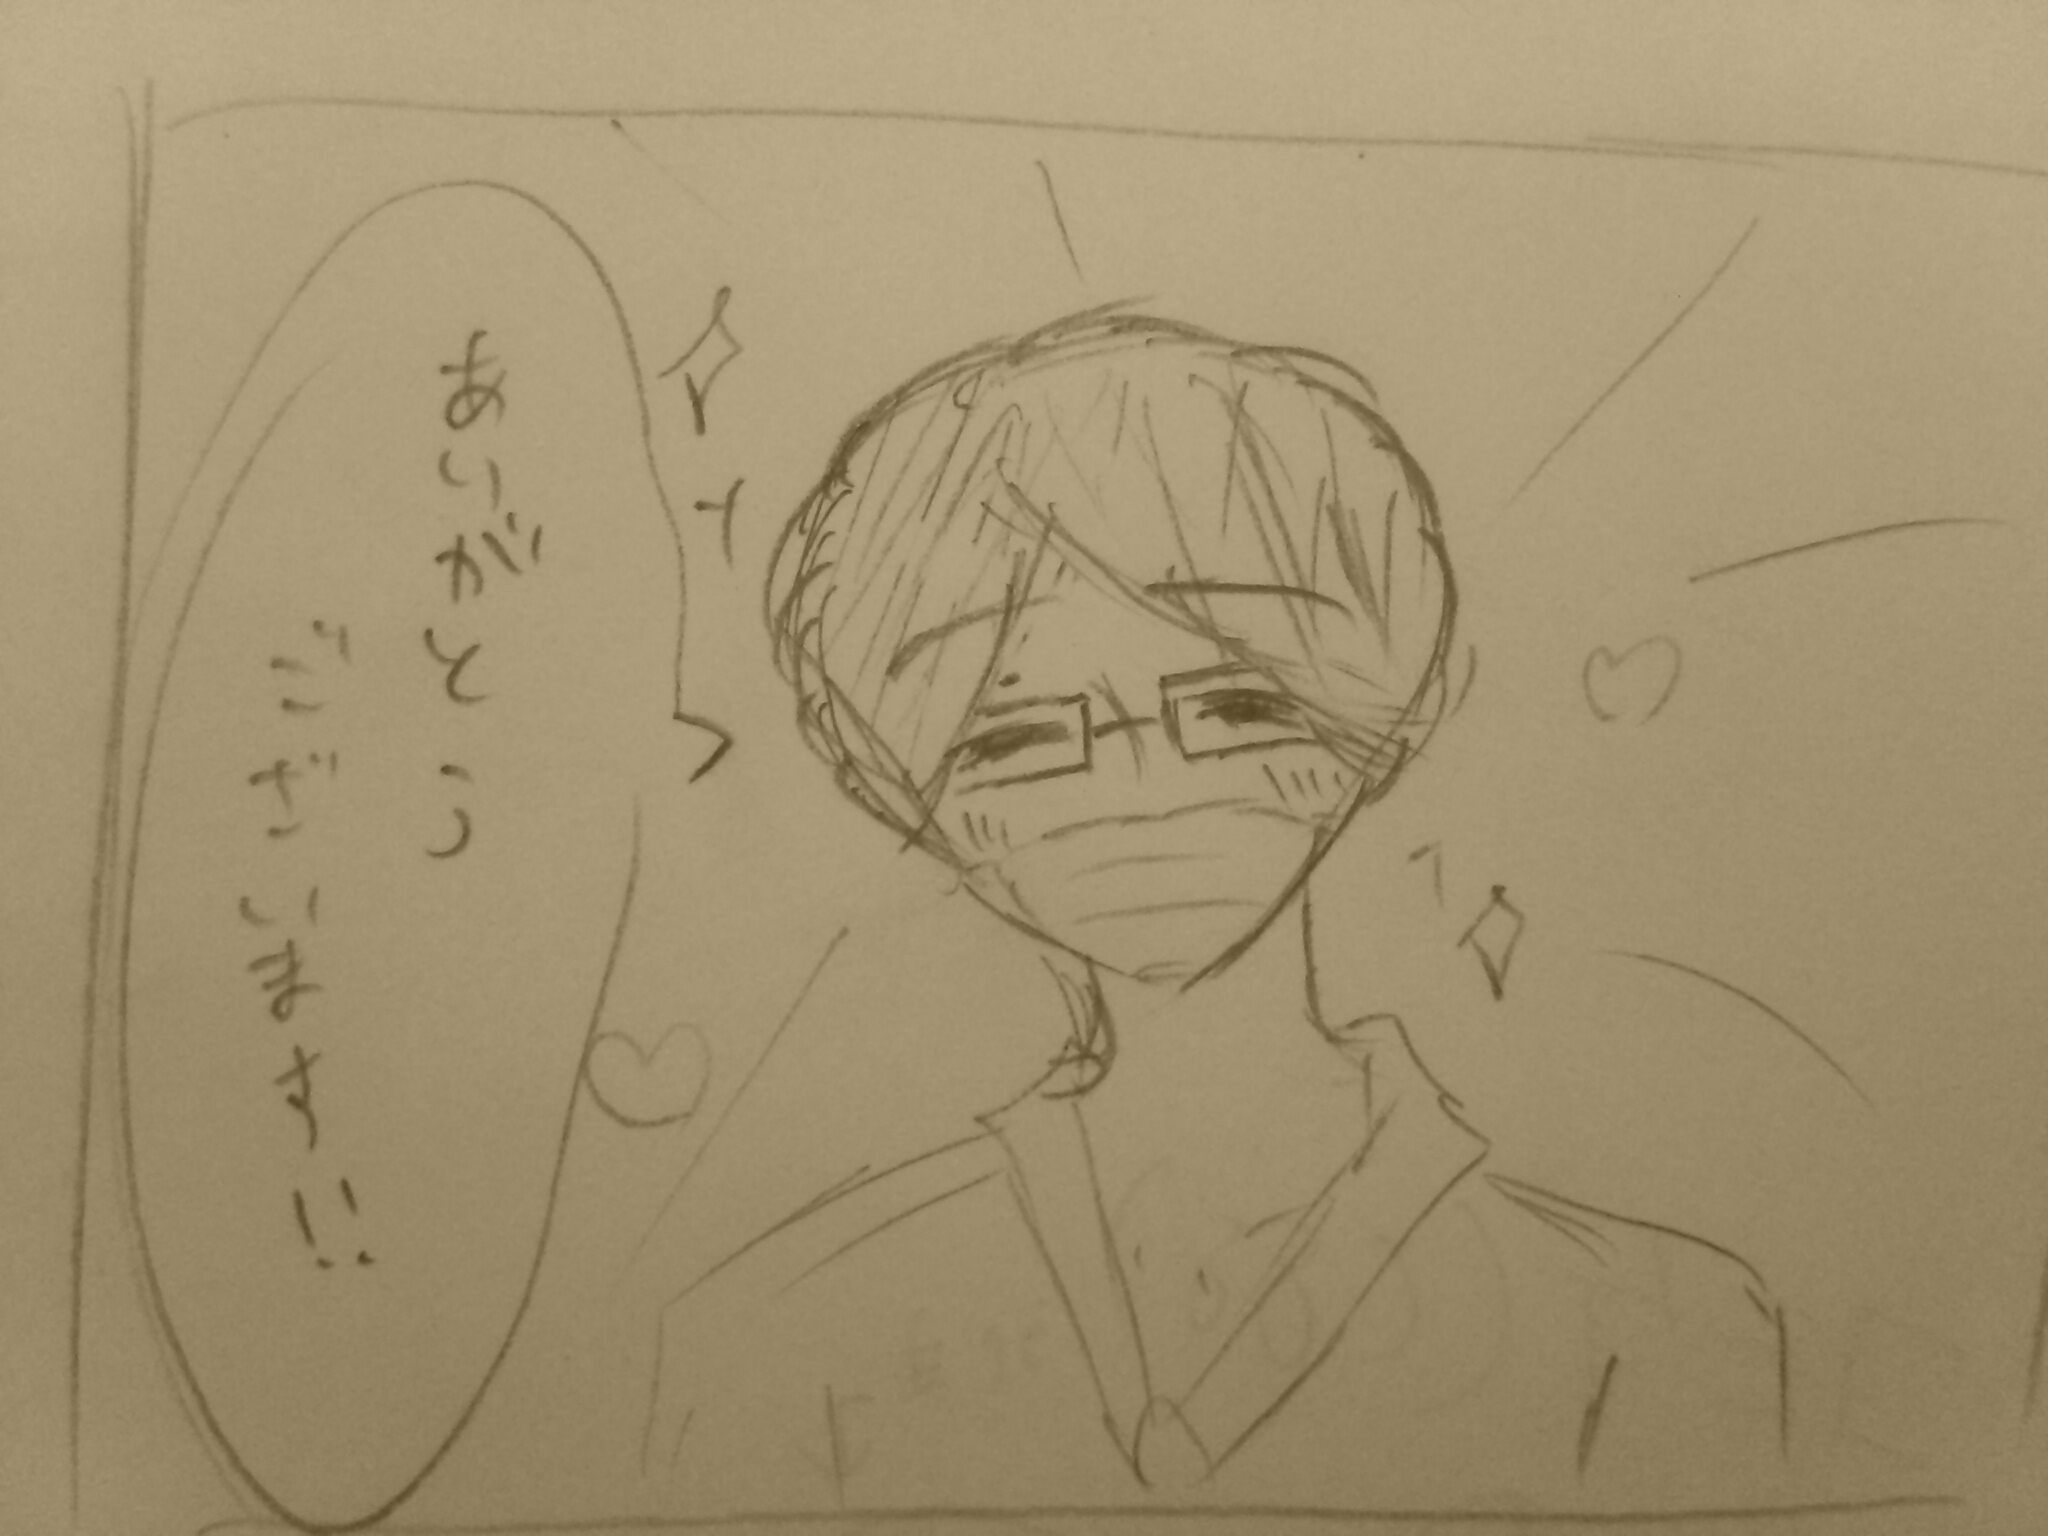 ありがとう
ございます!!